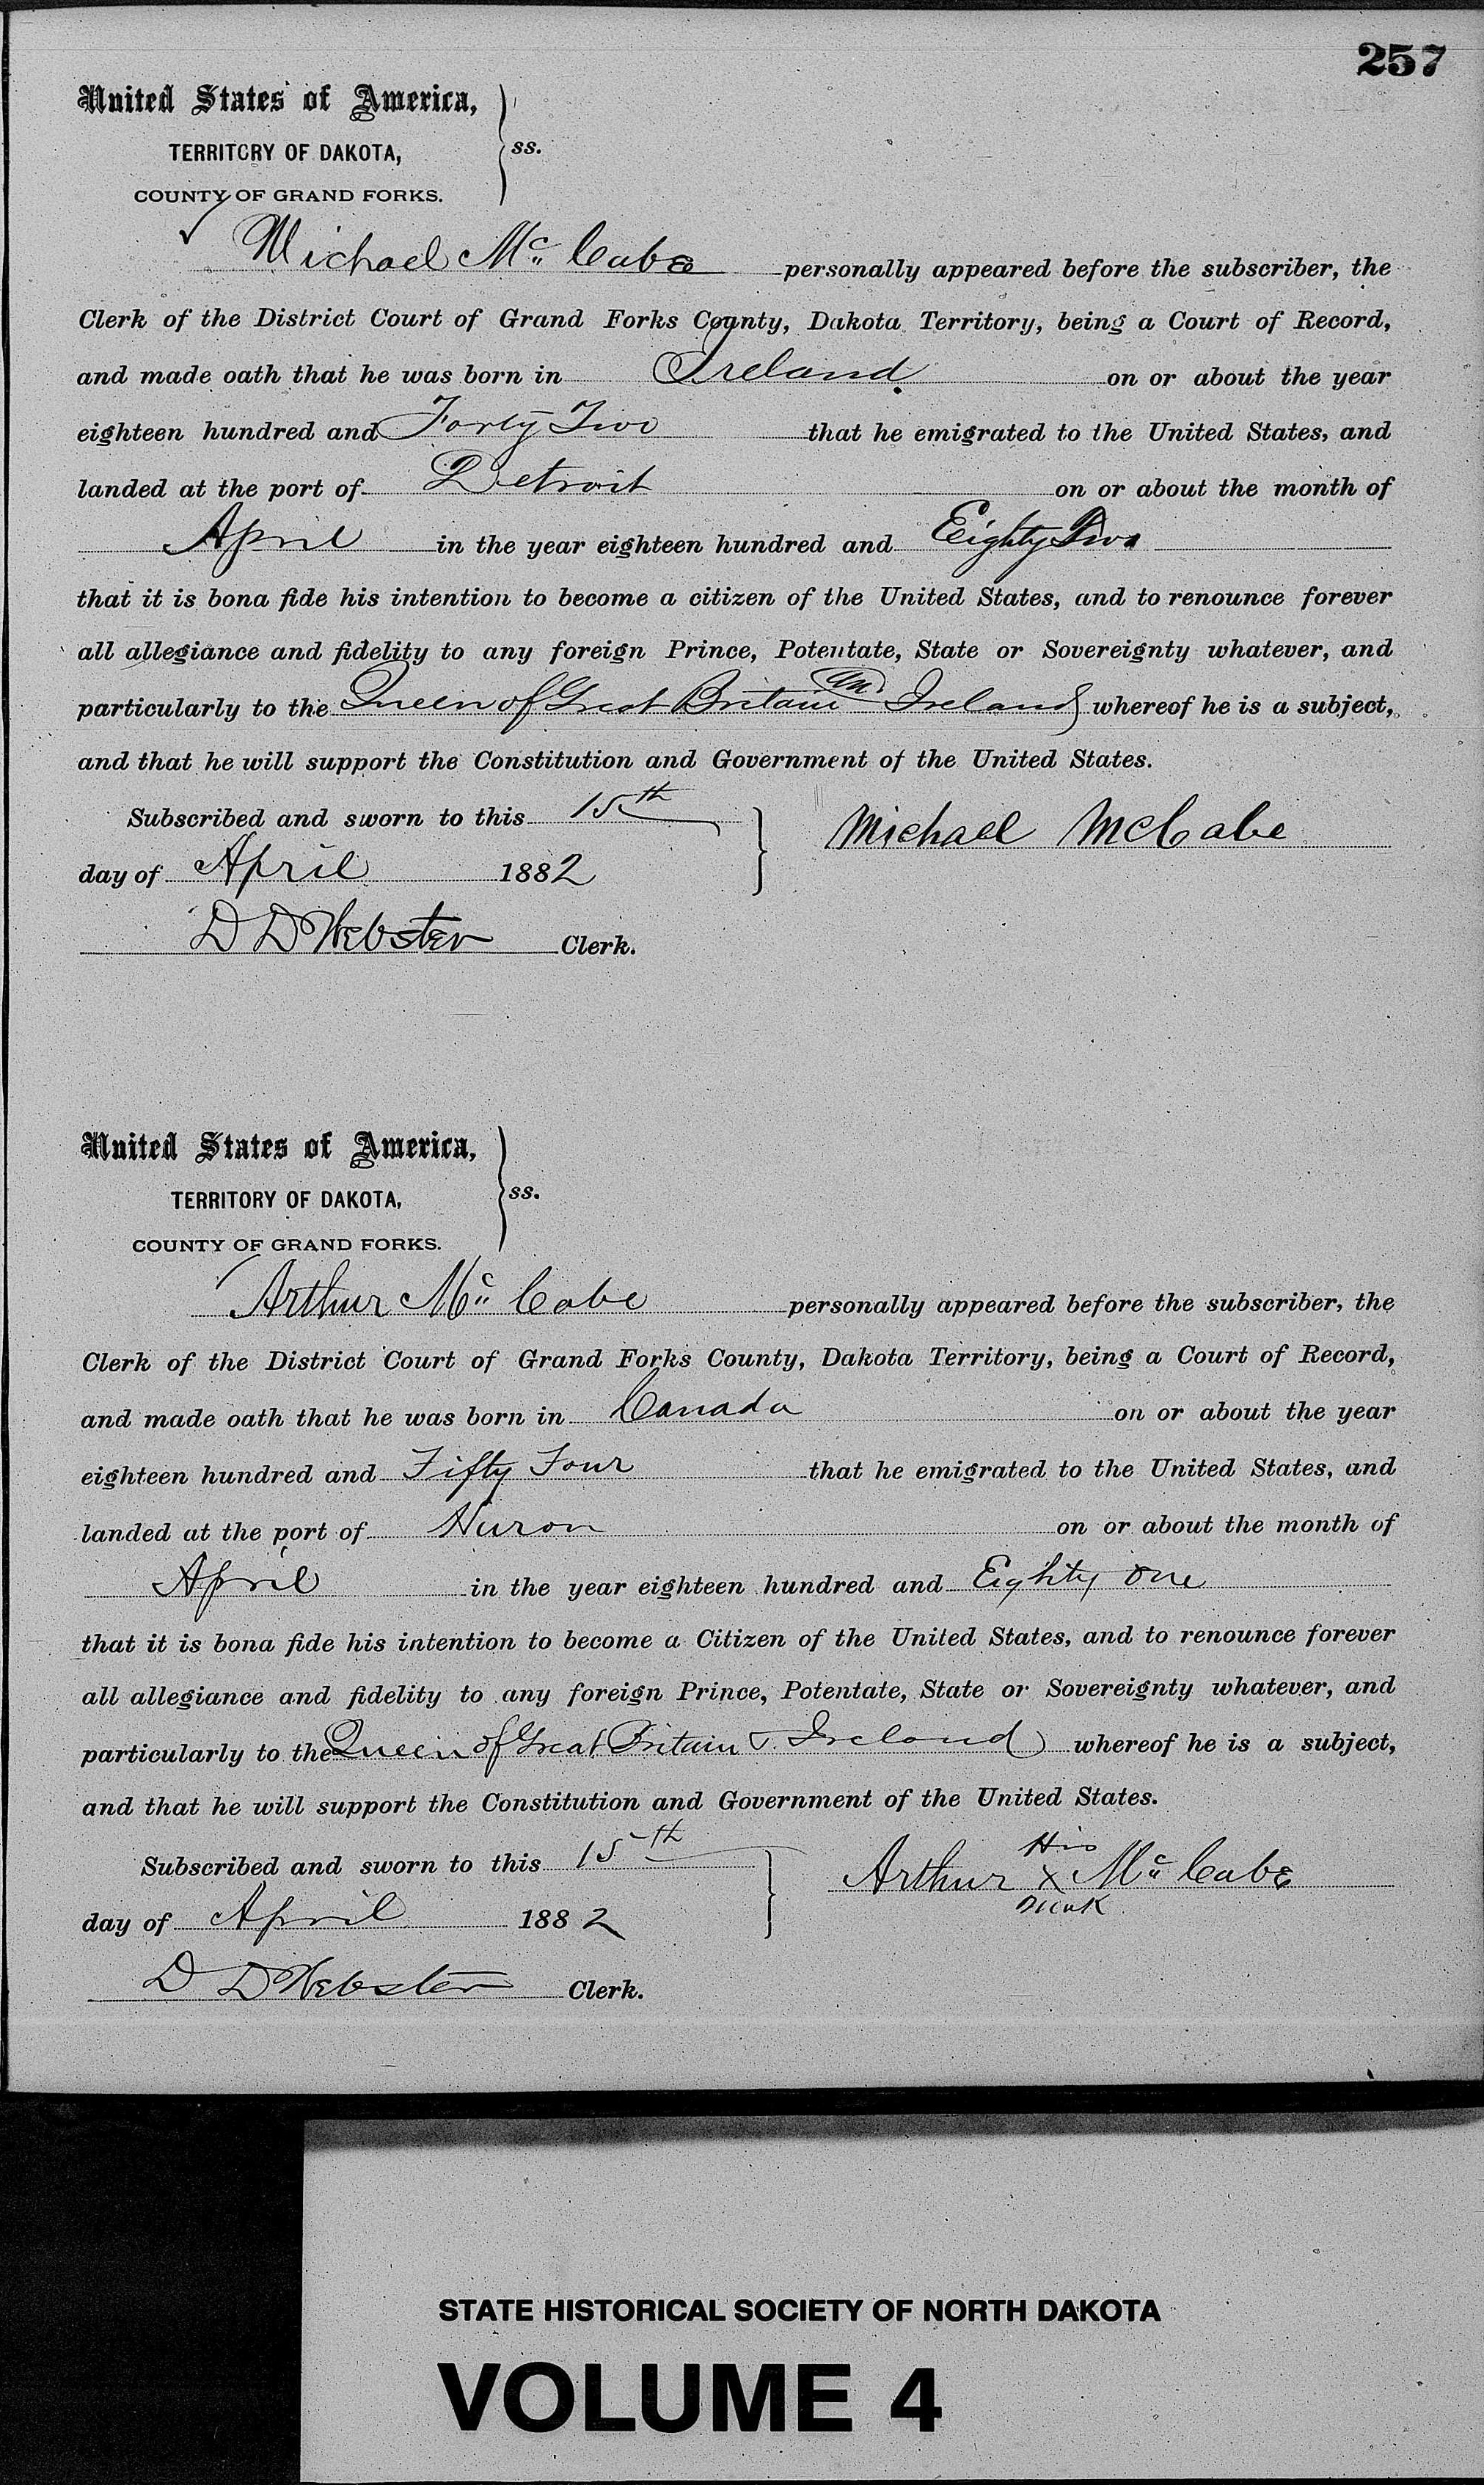 257
United States of America,
TERRITORY OF DAKOTA,
ss.
COUNTY OF GRAND FORKS.
Michael Mc Cabe personally appeared before the subscriber, the
Clerk of the District Court of Grand Forks County, Dakota Territory, being a Court of Record,
and made oath that he was born in Ireland on or about the year
eighteen hundred and Forty Two that he emigrated to the United States, and
landed at the port of Detroit on or about the month of
April in the year eighteen hundred and Eighty Two
that it is bona fide his intention to become a citizen of the United States, and to renounce forever
all allegiance and fidelity to any foreign Prince, Potentate, State or Sovereignty whatever, and
particularly to the Queen of Great Britain and Ireland whereof he is a subject,
and that he will support the Constitution and Government of the United States.
Subscribed and sworn to this 15th
Michael McCabe
day of April 1882
D D Webster Clerk.
United States of America,
TERRITORY OF DAKOTA,
ss.
COUNTY OF GRAND FORKS.
Arthur Mc Cabe personally appeared before the subscriber, the
Clerk of the District Court of Grand Forks County, Dakota Territory, being a Court of Record,
and made oath that he was born in Canada on or about the year
eighteen hundred and Fifty Four that he emigrated to the United States, and
landed at the port of Huron on or about the month of
April in the year eighteen hundred and Eighty One
that it is bona fide his intention to become a Citizen of the United States, and to renounce forever
all allegiance and fidelity to any foreign Prince, Potentate, State or Sovereignty whatever, and
particularly to the Queen of Great Britain & Ireland whereof he is a subject,
and that he will support the Constitution and Government of the United States.
Subscribed and sworn to this 15th
His
Arthur X Mc Cabe
mark
day of April 1882
D D Webster Clerk.
STATE HISTORICAL SOCIETY OF NORTH DAKOTA
VOLUME 4